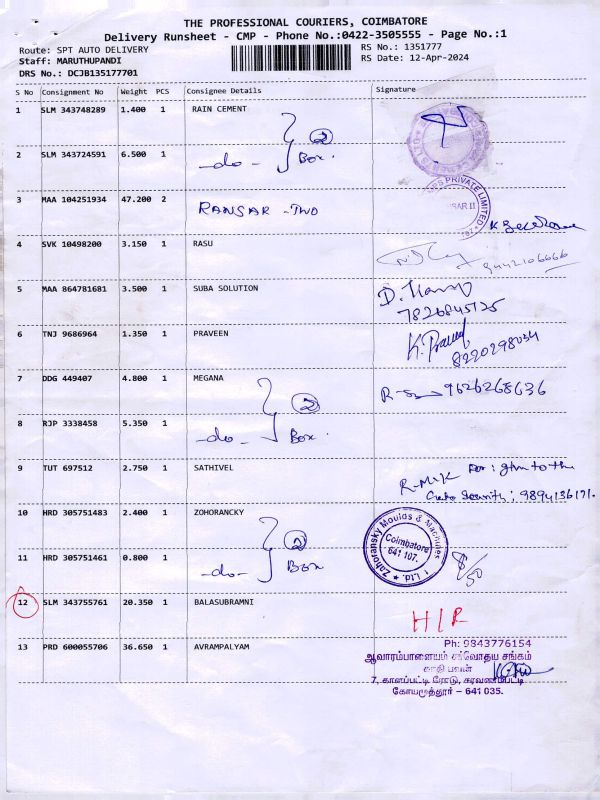 THE PROFESSIONAL COURIERS, COIMBATORE
Delivery Runsheet - CMP - Phone No.:0422-3505555 - Page No.:1
Route: SPT AUTO DELIVERY
RS No.: 1351777
Staff: MARUTHUPANDI
RS Date: 12-Apr-2024
DRS No.: DCJB135177701
S No Consignment No Weight PCS Consignee Details Signature
1 SLM 343748289 1.400 1 RAIN CEMENT
2 Box.
2 SLM 343724591 6.500 1 -do-
3 MAA 104251934 47.200 2 RANSAR -TWO
PRIVATE LIMITED
4 SVK 10498200 3.150 1 RASU 9442106666
5 MAA 864781681 3.500 1 SUBA SOLUTION D.
7826845725
6 TNJ 9686964 1.350 1 PRAVEEN K.
8220298034
7 DDG 449407 4.800 1 MEGANA 9626268636
2 Box.
8 RJP 3338458 5.350 1 -do-
9 TUT 697512 2.750 1 SATHIVEL
Security: 9894136171.
10 HRD 305751483 2.400 1 ZOHORANCKY
2 Box
Zahoransky Moulds & Machines
Coimbatore
641 107.
11 HRD 305751461 0.800 1 -do-
12 SLM 343755761 20.350 1 BALASUBRAMNI H/R
13 PRD 600055706 36.650 1 AVRAMPALYAM
Ph: 9843776154
ஆவாரம்பாளையம் சர்வோதய சங்கம்
காதி பவன்
7, காளப்பட்டி ரோடு, சரவணம்பட்டி
கோயமுத்தூர் - 641 035.